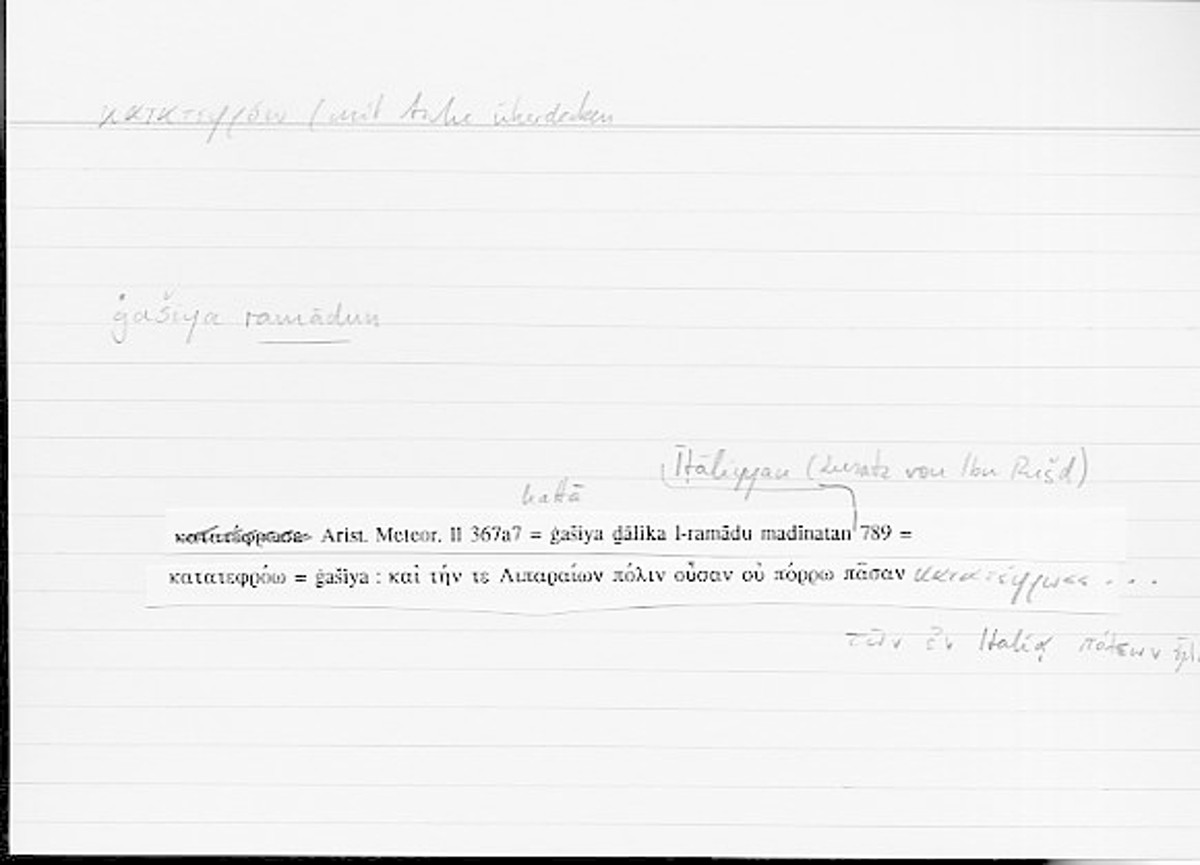 κατατεφρόω (mit Asche überdecken
ġašiya ramādun
Iṭāliyyan (Zusatz von Ibn Rušd)
ḥattā
κατατέφρωσε Arist. Meteor. II 367a7 = ġašiya ḏālika l-ramādu madīnatan 789 =
κατατεφρόω = ġašiya : καὶ τήν τε Λιπαραίων πόλιν οὖσαν οὐ πόρρω πᾶσαν κατατέφρωσε . . .
τῶν ἐν Italίᾳ πόλεων